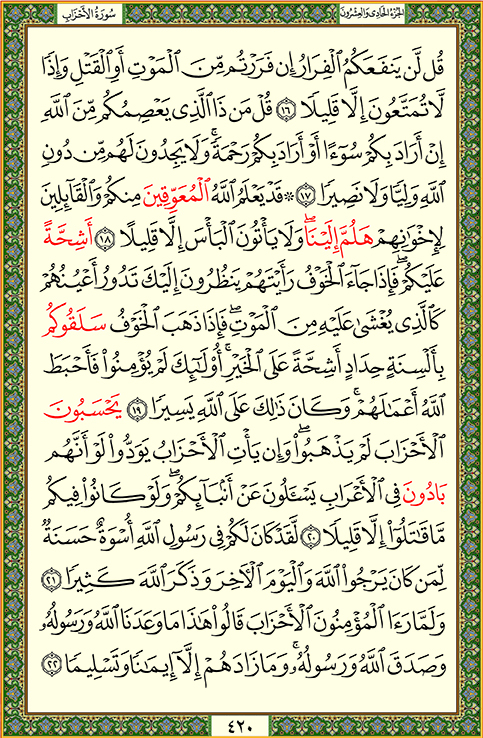 سُورَةُ الأَحْزَابِ الجُزْءُ الحَادِي وَالعِشْرُونَ
قُل لَّن يَنفَعَكُمُ ٱلْفِرَارُ إِن فَرَرْتُم مِّنَ ٱلْمَوْتِ أَوِ ٱلْقَتْلِ وَإِذًا
لَّا تُمَتَّعُونَ إِلَّا قَلِيلًا ١٦ قُلْ مَن ذَا ٱلَّذِى يَعْصِمُكُم مِّنَ ٱللَّهِ
إِنْ أَرَادَ بِكُمْ سُوٓءًا أَوْ أَرَادَ بِكُمْ رَحْمَةً ۚ وَلَا يَجِدُونَ لَهُم مِّن دُونِ
ٱللَّهِ وَلِيًّا وَلَا نَصِيرًا ١٧ * قَدْ يَعْلَمُ ٱللَّهُ ٱلْمُعَوِّقِينَ مِنكُمْ وَٱلْقَآئِلِينَ
لِإِخْوَٰنِهِمْ هَلُمَّ إِلَيْنَا ۖ وَلَا يَأْتُونَ ٱلْبَأْسَ إِلَّا قَلِيلًا ١٨ أَشِحَّةً
عَلَيْكُمْ ۖ فَإِذَا جَآءَ ٱلْخَوْفُ رَأَيْتَهُمْ يَنظُرُونَ إِلَيْكَ تَدُورُ أَعْيُنُهُمْ
كَٱلَّذِى يُغْشَىٰ عَلَيْهِ مِنَ ٱلْمَوْتِ ۖ فَإِذَا ذَهَبَ ٱلْخَوْفُ سَلَقُوكُم
بِأَلْسِنَةٍ حِدَادٍ أَشِحَّةً عَلَى ٱلْخَيْرِ ۚ أُو۟لَٰٓئِكَ لَمْ يُؤْمِنُوا۟ فَأَحْبَطَ
ٱللَّهُ أَعْمَٰلَهُمْ ۚ وَكَانَ ذَٰلِكَ عَلَى ٱللَّهِ يَسِيرًا ١٩ يَحْسَبُونَ
ٱلْأَحْزَابَ لَمْ يَذْهَبُوا۟ ۖ وَإِن يَأْتِ ٱلْأَحْزَابُ يَوَدُّوا۟ لَوْ أَنَّهُم
بَادُونَ فِى ٱلْأَعْرَابِ يَسْـَٔلُونَ عَنْ أَنۢبَآئِكُمْ ۖ وَلَوْ كَانُوا۟ فِيكُم
مَّا قَٰتَلُوٓا۟ إِلَّا قَلِيلًا ٢٠ لَّقَدْ كَانَ لَكُمْ فِى رَسُولِ ٱللَّهِ أُسْوَةٌ حَسَنَةٌ
لِّمَن كَانَ يَرْجُوا۟ ٱللَّهَ وَٱلْيَوْمَ ٱلْأَخِرَ وَذَكَرَ ٱللَّهَ كَثِيرًا ٢١
وَلَمَّا رَءَا ٱلْمُؤْمِنُونَ ٱلْأَحْزَابَ قَالُوا۟ هَٰذَا مَا وَعَدَنَا ٱللَّهُ وَرَسُولُهُۥ
وَصَدَقَ ٱللَّهُ وَرَسُولُهُۥ ۚ وَمَا زَادَهُمْ إِلَّآ إِيمَٰنًا وَتَسْلِيمًا ٢٢
٤٢٠